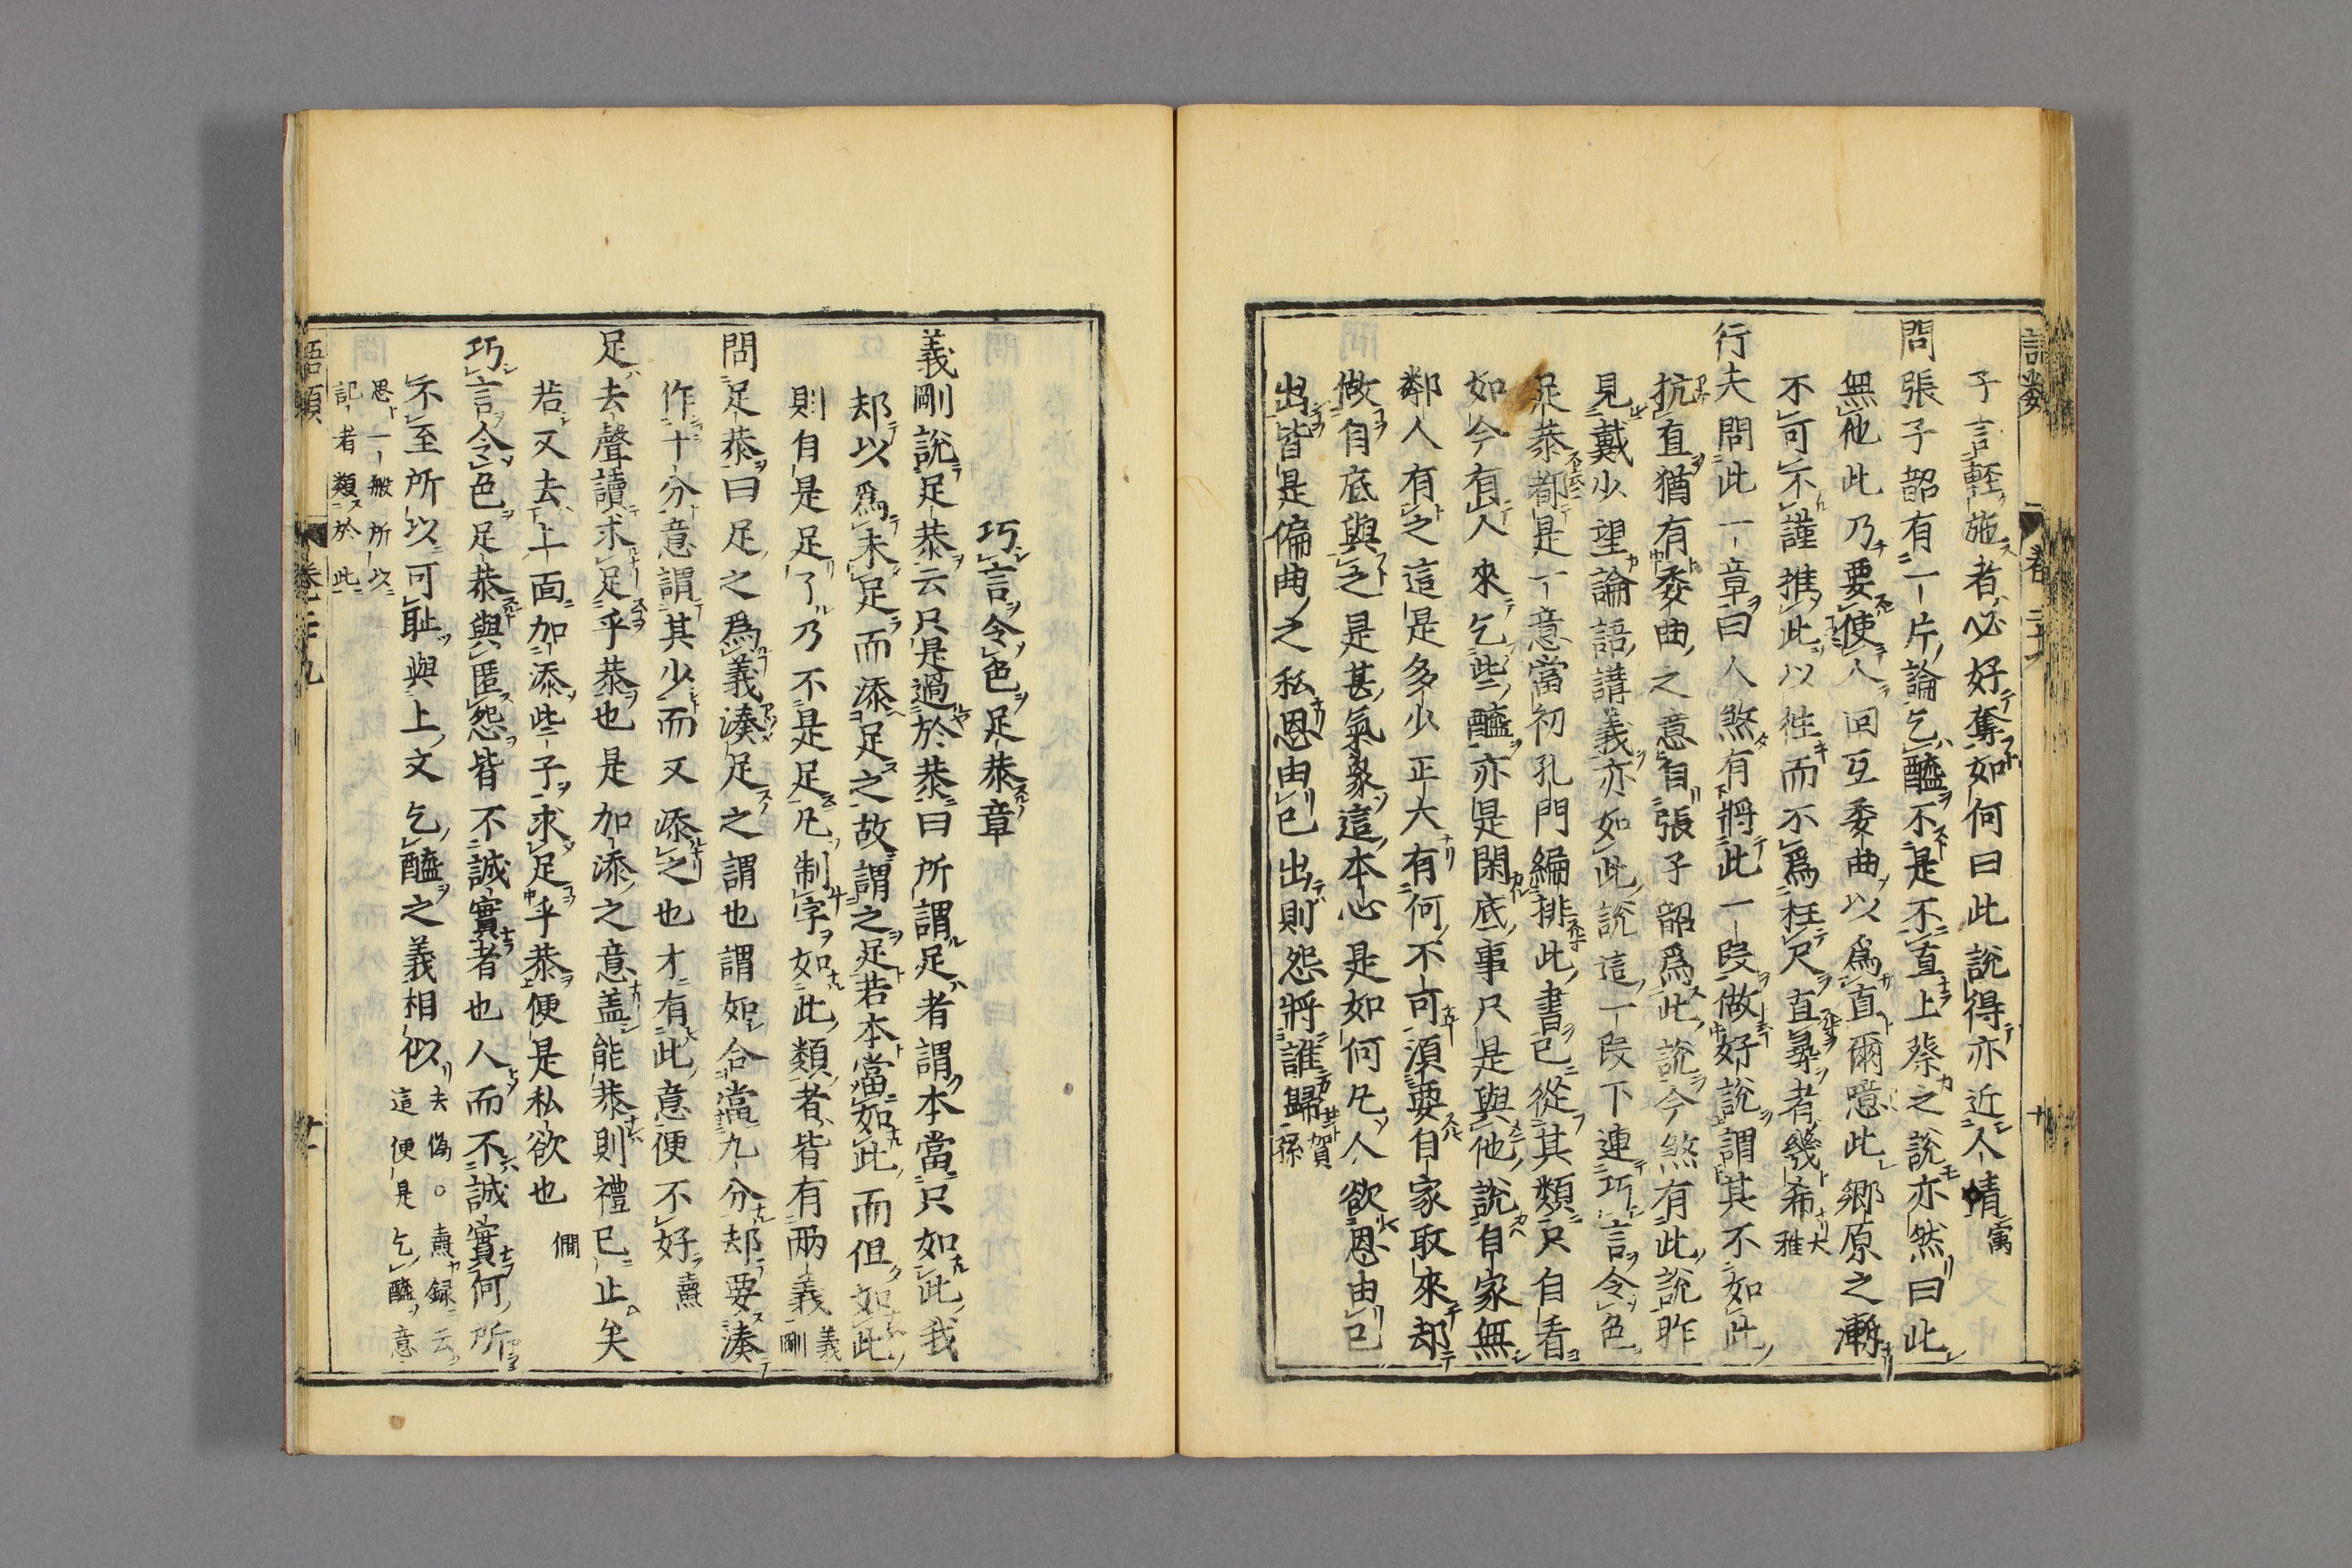 子言輕施者必好奪如何曰此說得亦近人情 㝢
問張子韶有一片論乞醯不是不直上蔡之說亦然曰此
無他此乃要使人回互委曲以為直爾噫此鄉原之漸
不可不謹推此以徃而不為枉尺直尋者幾希 大雅
行夫問此一章曰人煞有將此一段做好說謂其不如此
抗直猶有委曲之意自張子韶為此說今煞有此說昨
見戴少望論語講義亦如此說這一段下連巧言令色
足恭都是一意當初孔門編排此書已從其類只自看
如今有人來乞些醯亦是閑底事只是與他說自家無
鄰人有之這是多少正大有何不可須要自家取來却
做自底與之是甚氣象這本心是如何凡人欲恩由己
出皆是偏曲之私恩由己出則怨將誰歸 賀孫
語類
卷二十九
巧言令色足恭章
義剛說足恭云只是過於恭曰所謂足者謂本當只如此我
却以為未足而添足之故謂之足若本當如此而但如此
則自是足了乃不是足凡制字如此類者皆有兩義 義剛
問足恭曰足之為義湊足之謂也謂如合當九分却要湊
作十分意謂其少而又添之也才有此意便不好 燾
足去聲讀求足乎恭也是加添之意盖能恭則禮已止矣
若又去上面加添些子求足乎恭便是私欲也 僩
巧言令色足恭與匿怨皆不誠實者也人而不誠實何所
不至所以可恥與上文乞醯之義相似 去偽○燾録云
這便是乞醯意
思一般所以
記者類於此
語類
卷二十九